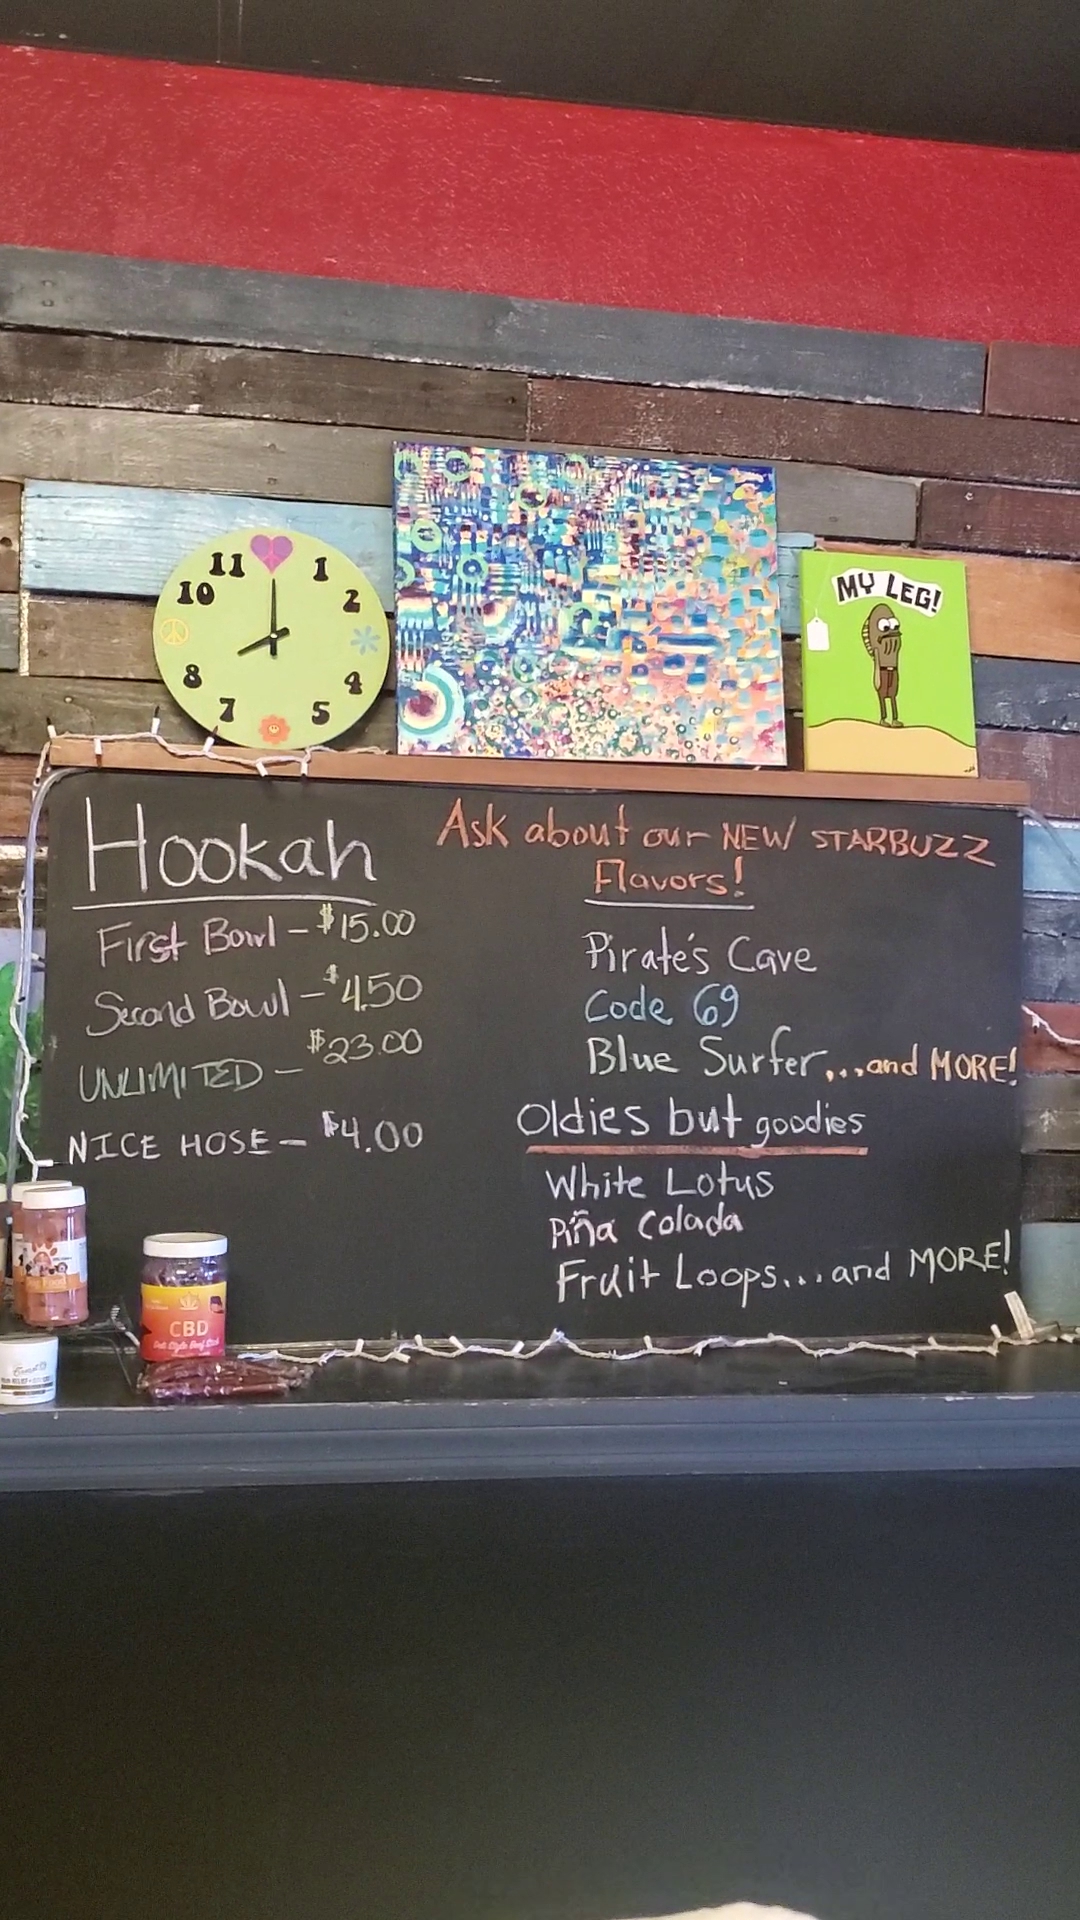 11 1
10 2
8 4
7 5
MY LEG!
Hookah
First Bowl - $15.00
Second Bowl - $4.50
UNLIMITED - $23.00
NICE HOSE - $4.00
Ask about our NEW STARBUZZ
Flavors!
Pirate's Cave
Code 69
Blue Surfer...and MORE!
Oldies but goodies
White Lotus
Piña Colada
Fruit Loops...and MORE!
CBD